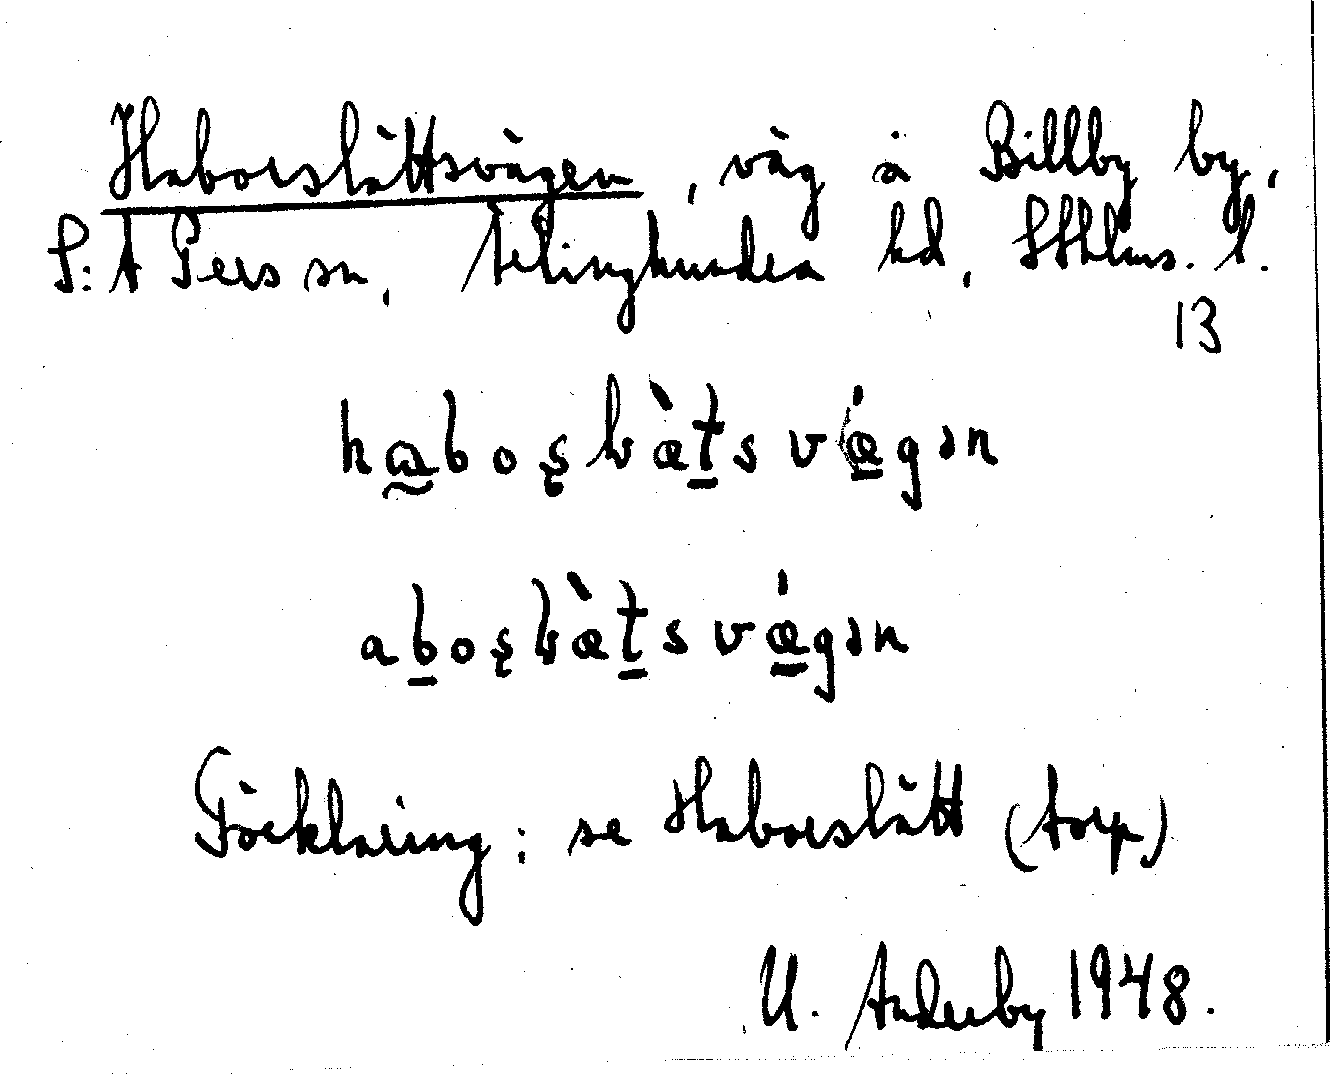 Haborslättsvägen, väg å Billby by,
S:t Pers sn, Ærlinghundra hd, Sthlms. l.
13
habosḷæ̀tsvǽgən
abosḷæ̀tsvǽgən
Förklaring: se Haborslätt (torp)
U. Anderby 1948.